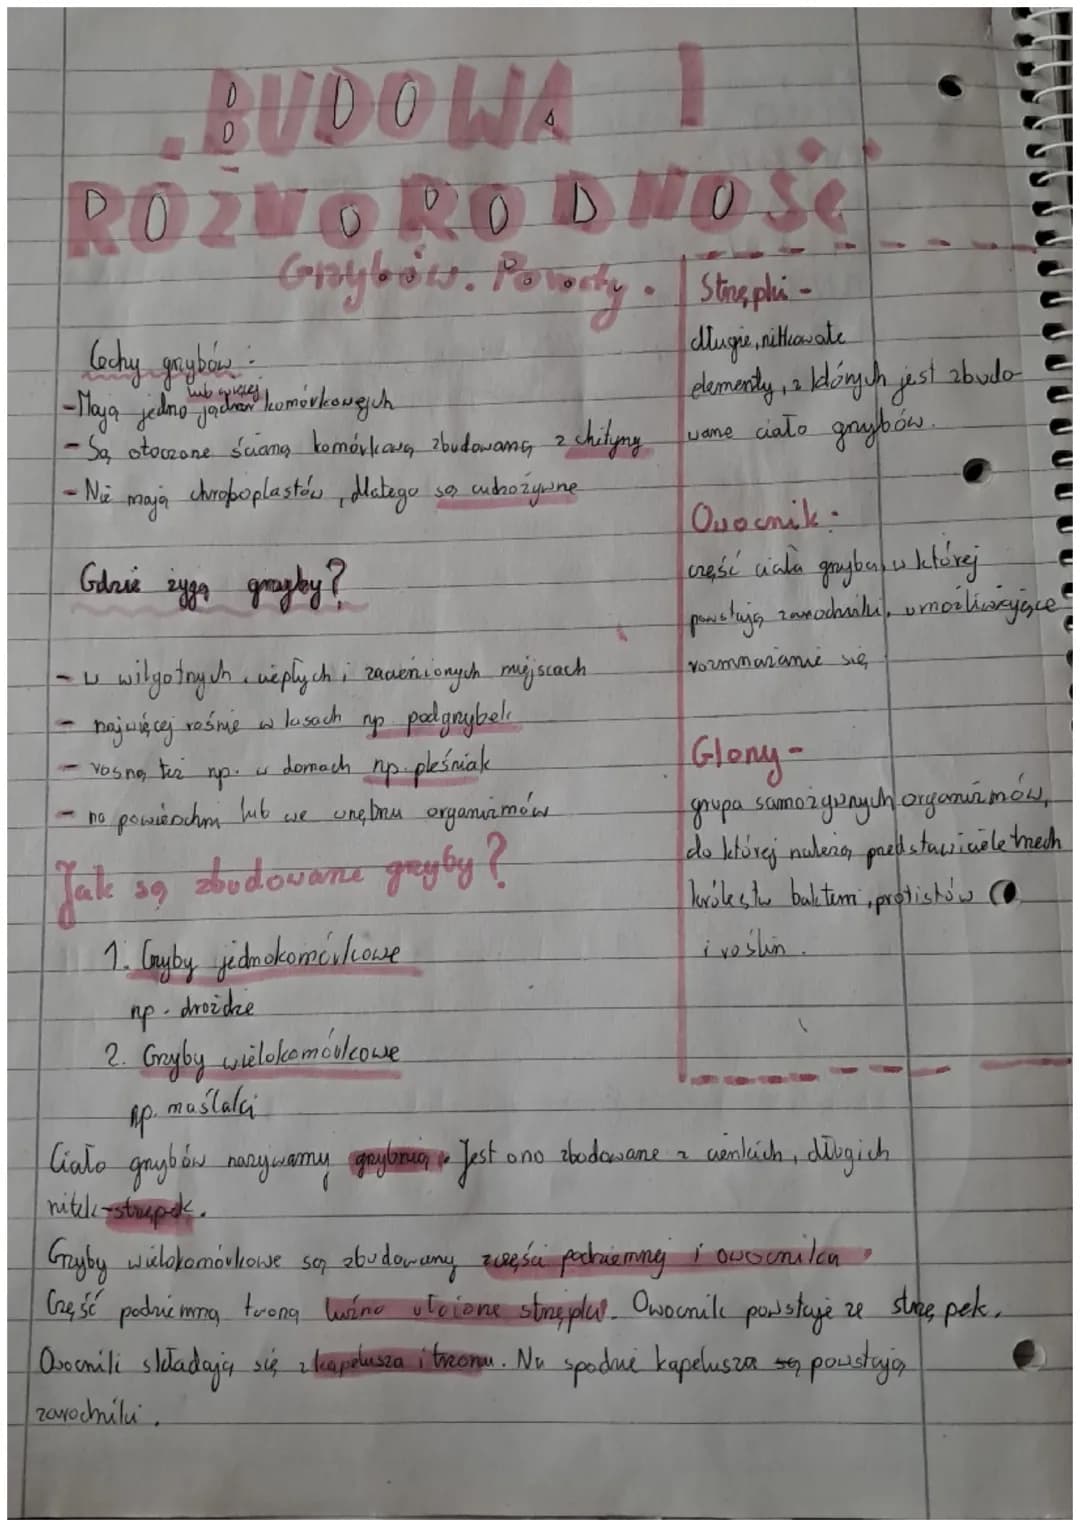 BUDOWA I
RÓŻNORODNOŚĆ
Grzybów. Porosty.
Cechy grzybów:
lub więcej
-Mają jedno jądrar komórkowejch
- Są otoczone ścianą komórkową zbudowaną z chityny
- Nie mają chroboplastów, dlatego są cudzożywne
Gdzie żyją grzyby?
- w wilgotnych, ciepłych i zacienionych miejscach
- najwięcej rośnie w lasach np. podgrzybek
- rosną też np. w domach np. pleśniak
- na powierzchni lub we wnętrzu organizmów
Jak są zbudowane grzyby?
1. Grzyby jednokomórkowe
np. drożdże
2. Grzyby wielokomórkowe
np. maślaki
Strzępki -
długie, nitkowate
elementy, z których jest zbudo-
wane ciało grzybów.
Owocnik:
część ciała grzyba, w której
powstają zarodniki, umożliwiające
rozmnażanie się
Glony -
grupa samożywnych organizmów,
do której należą przedstawiciele trzech
królestw bakterii, protistów
i roślin.
Ciało grzybów nazywamy grzybnią. Jest ono zbudowane z cienkich, długich
nitek-strzępek.
Grzyby wielokomórkowe są zbudowany z części podziemnej i owocnika
Część podziemną tworzą luźno utcione strzępki. Owocnik powstaje ze strzępek.
Owocniki składają się z kapelusza i trzonu. Na spodnie kapelusza są powstają
zarodniki.